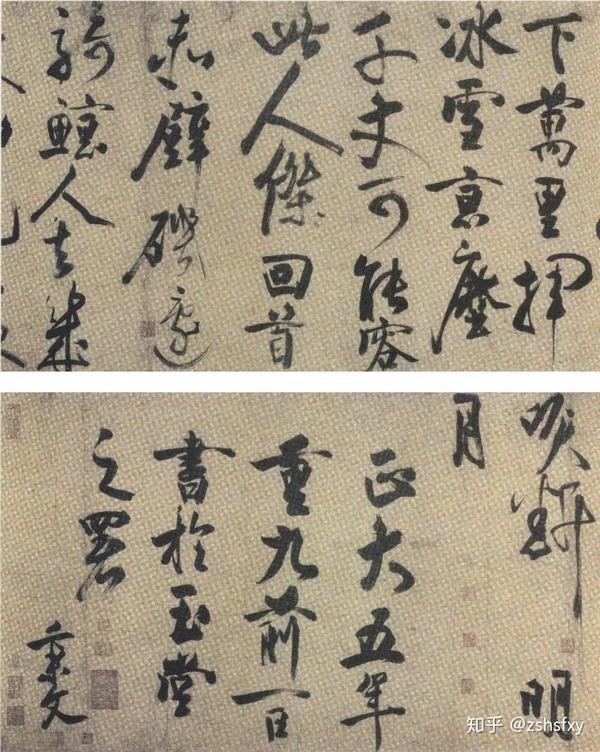 下萬里揮
冰雪京塵
千丈可能容
此人傑回首
赤壁磯邊
騎鯨人去幾
吹斷明
月
正大五年
重九前一日
書於玉堂
之署
秉文
知乎 @zshsfxy